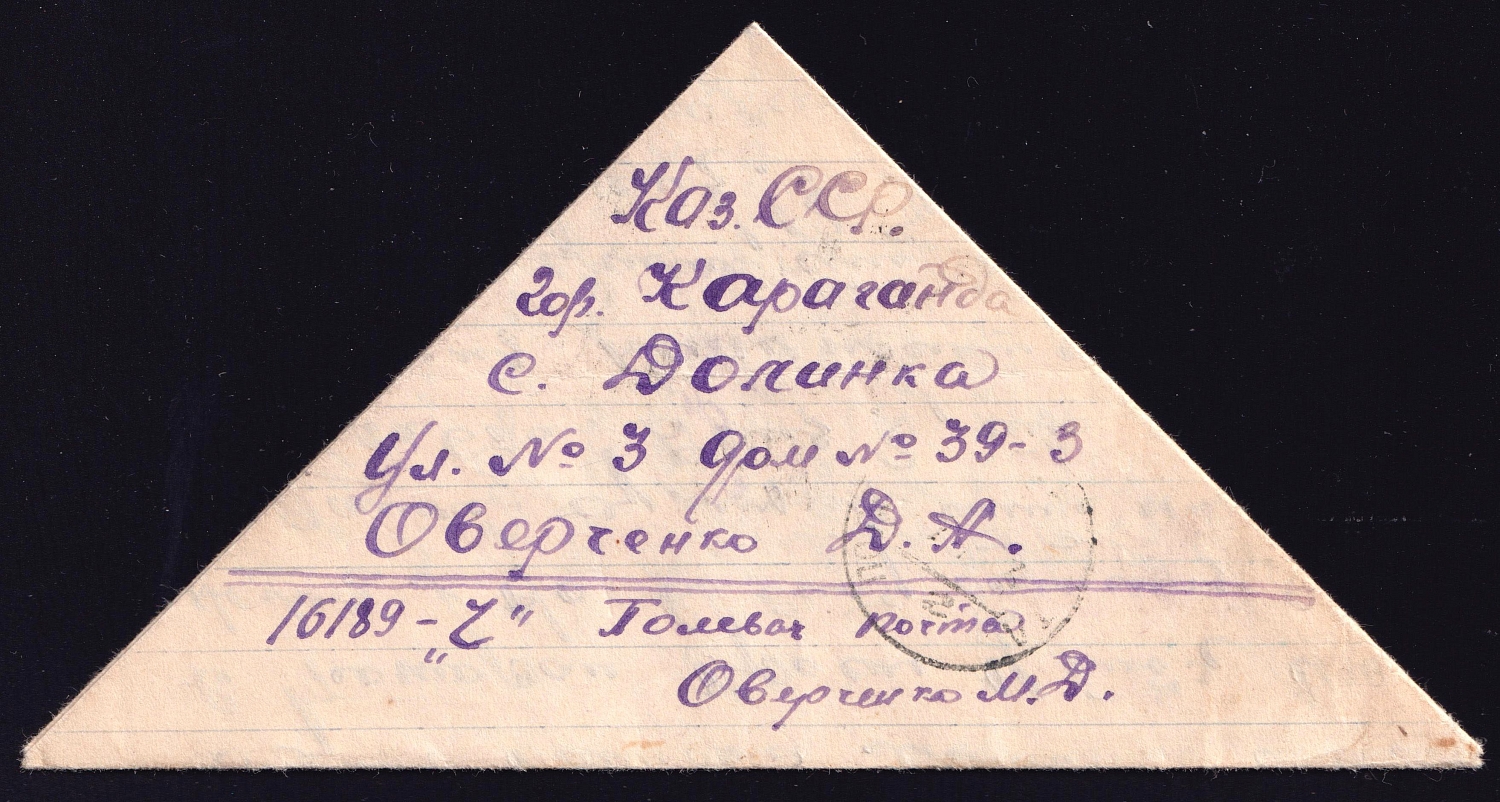 Каз. ССР.
гор. Караганда
с. Долинка
Ул. № 3 дом № 39-3
Оверченко Д. А.
16189 - „Ч“ Полевая почта
Оверченко М. Д.